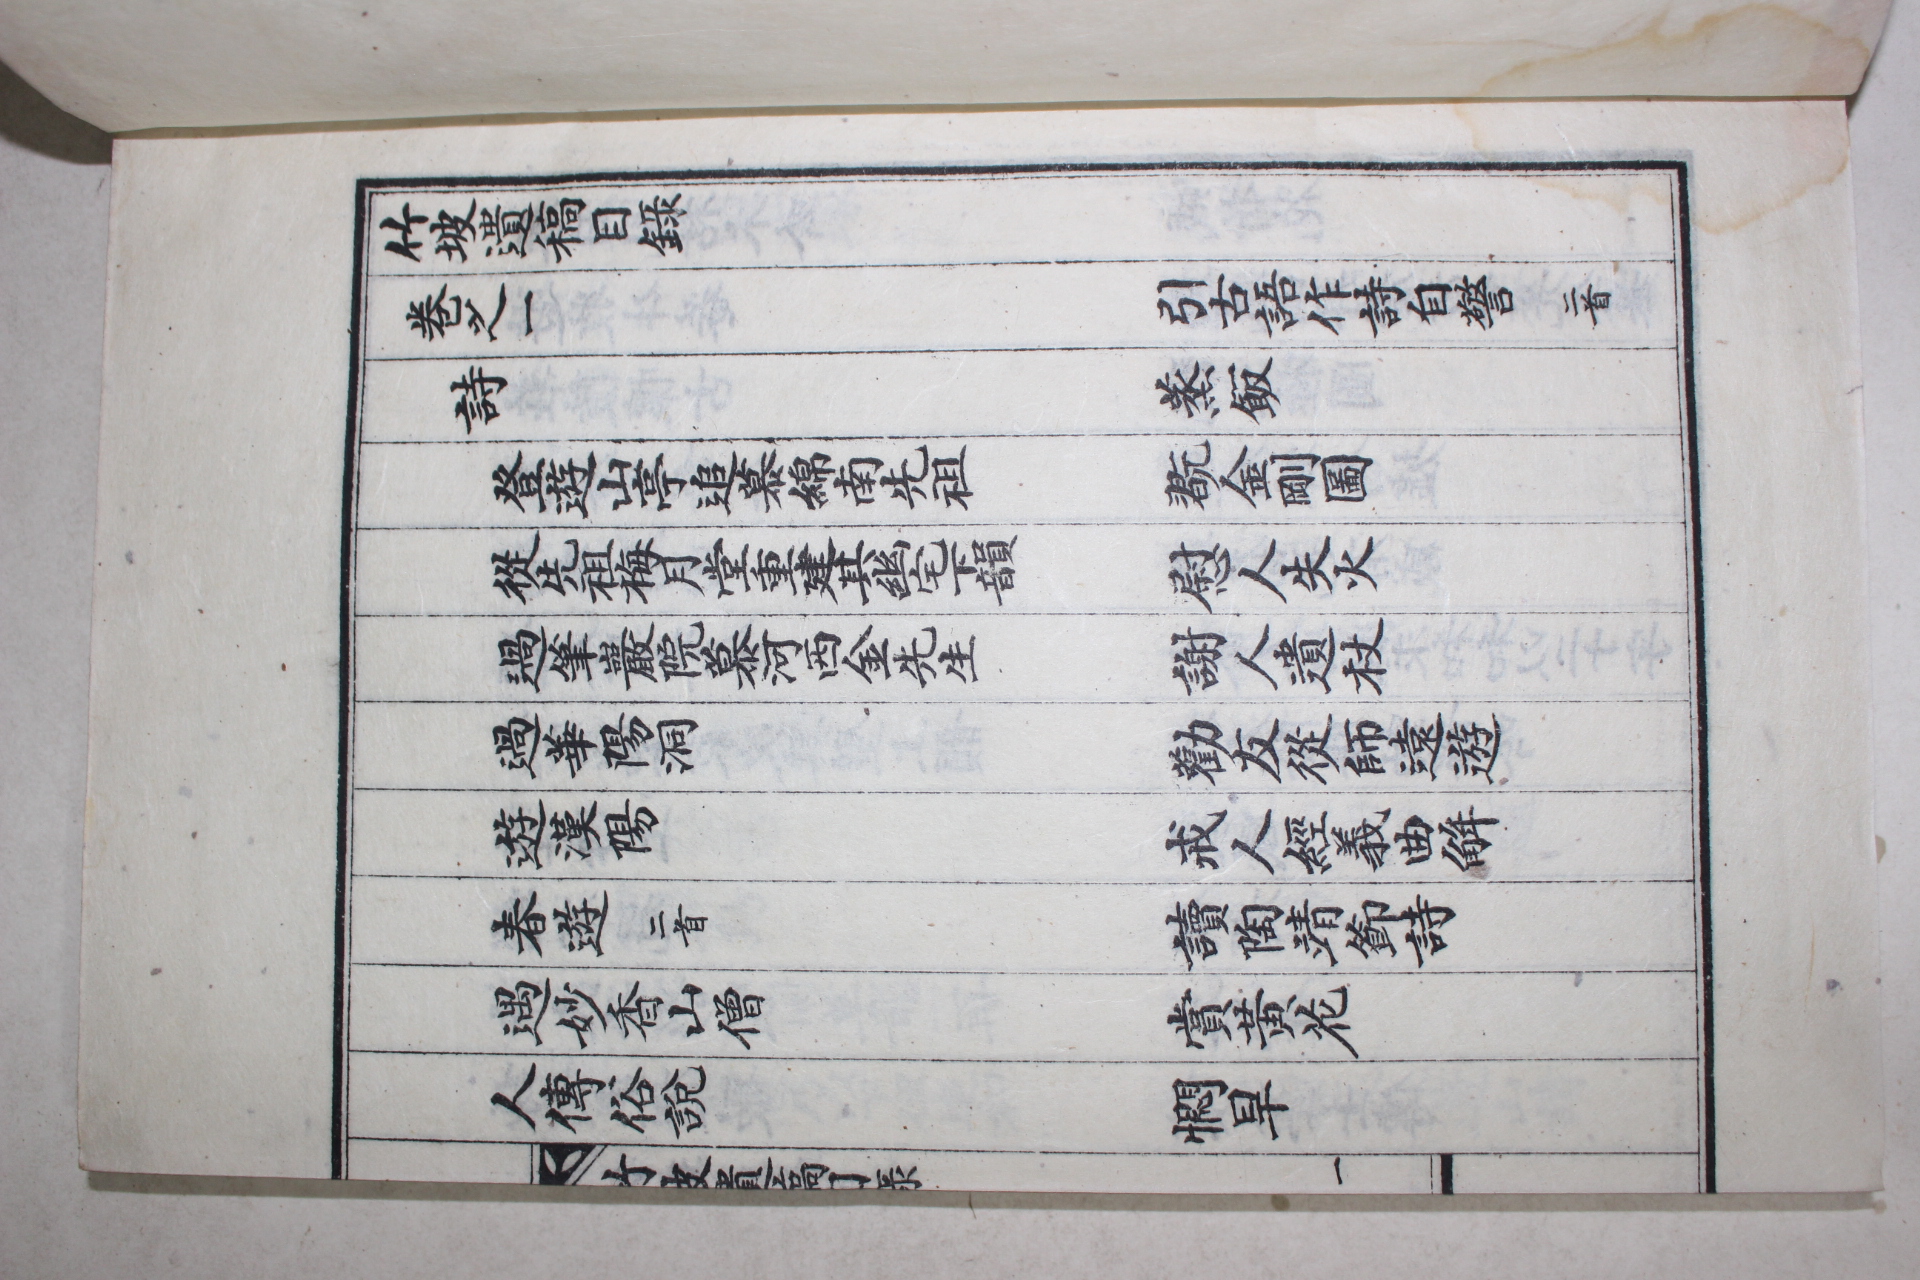 竹坡遺稿目錄
卷之一
引古語作詩自警 二首
詩
蒸飯
登遊山亭追慕綿南先祖
翫金剛圖
從先祖梅月堂重建其幽宅下韻
慰人失火
過筆巖院慕河西金先生
謝人遺杖
過華陽洞
勸友從師遠遊
遊漢陽
戒人經義曲解
春遊 二首
讀陶靖節詩
遇妙香山僧
賞黃花
人傳俗說
憫旱
竹坡遺稿目錄 一